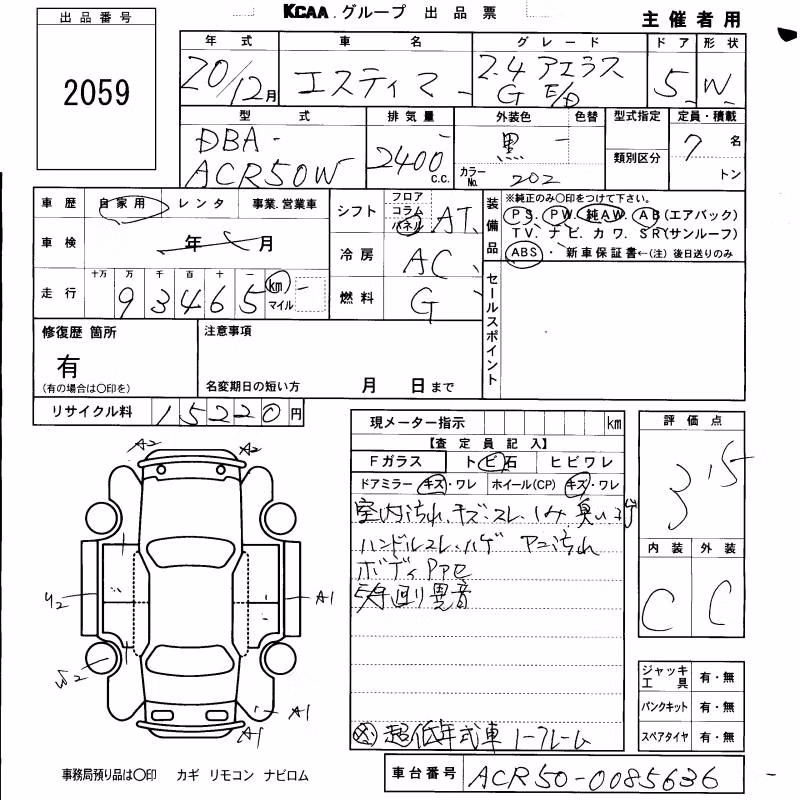 KCAA グループ 出品票
主催者用
出品番号
2059
年式 車名 グレード ドア 形状
20/12月 エスティマ 2.4アエラス G E/D 5 W
型式 排気量 外装色 色替 型式指定 定員・積載
DBA-
ACR50W 2400 c.c. 黒 類別区分 7名
カラーNo. 202 トン
車歴 自家用 レンタ 事業.営業車
シフト フロア コラム パネル AT
装備品 ※純正のみ〇印をつけて下さい。
PS. PW. 純AW. AB(エアバック)
TV. ナビ. カワ. SR(サンルーフ)
ABS ・ 新車保証書←(注)後日送りのみ
車検 年 月
冷房 AC
走行 十万 万 千 百 十 一
93465 km マイル
燃料 G
セールスポイント
修復歴 箇所
有
(有の場合は〇印を)
注意事項
名変期日の短い方 月 日まで
リサイクル料 15220円
現メーター指示 km
【査定員記入】
Fガラス トビ石 ヒビワレ
ドアミラー キズ・ワレ ホイール(CP) キズ・ワレ
室内汚れ.キズ.スレ.シミ 臭い
ハンドルスレ.ハゲ マニ汚れ
ボディ
廻り異音
超低年式車 ノークレーム
評価点
3.5
内装 外装
C C
ジャッキ工具 有・無
パンクキット 有・無
スペアタイヤ 有・無
A2 A2
A1
A1
A1
事務局預り品は〇印 カギ リモコン ナビロム
車台番号 ACR50-0085636